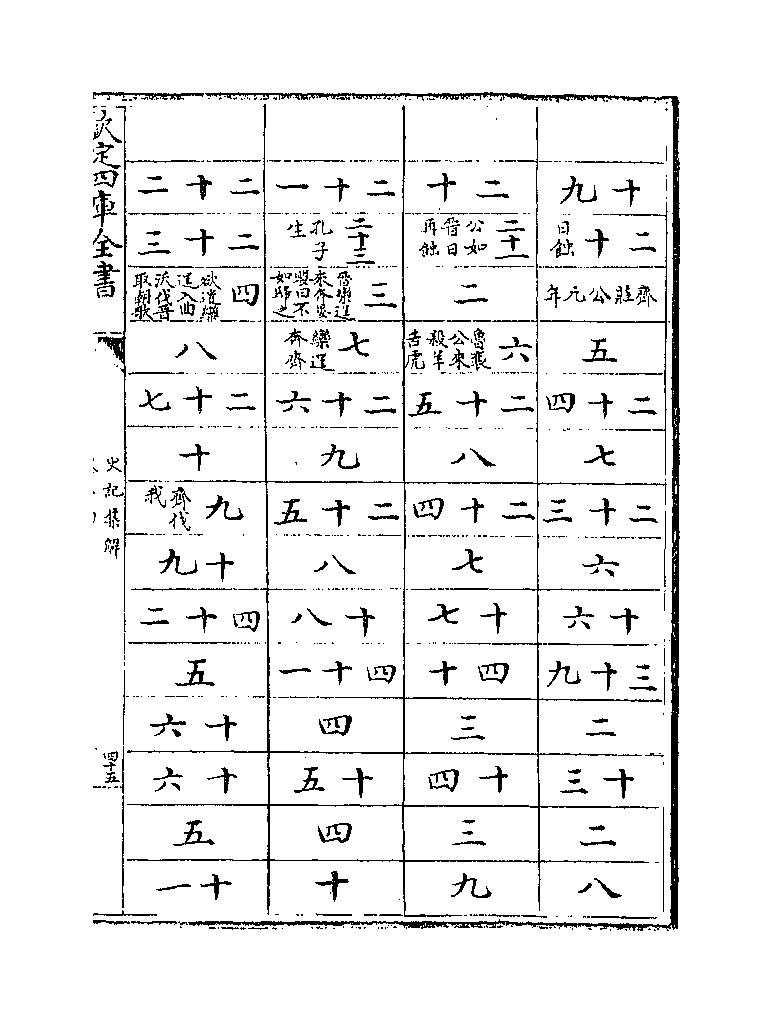 十九
二十 日蝕
齊莊公元年
五
二十四
七
二十三
六
十六
三十九
二
十三
二
八
二十
二十一 公如晉日再蝕
二
六 魯襄公來殺羊舌虎
二十五
八
二十四
七
十七
四十
三
十四
三
九
二十一
二十三 孔子生
三 晉欒逞來奔晏嬰曰不如歸之
七 欒逞奔齊
二十六
九
二十五
八
十八
四十一
四
十五
四
十
二十二
二十三
四 欲遣欒逞入曲沃伐晉取朝歌
八
二十七
十
九 齊伐我
十九
四十二
五
十六
十六
五
十一
欽定四庫全書
史記集解
四十五